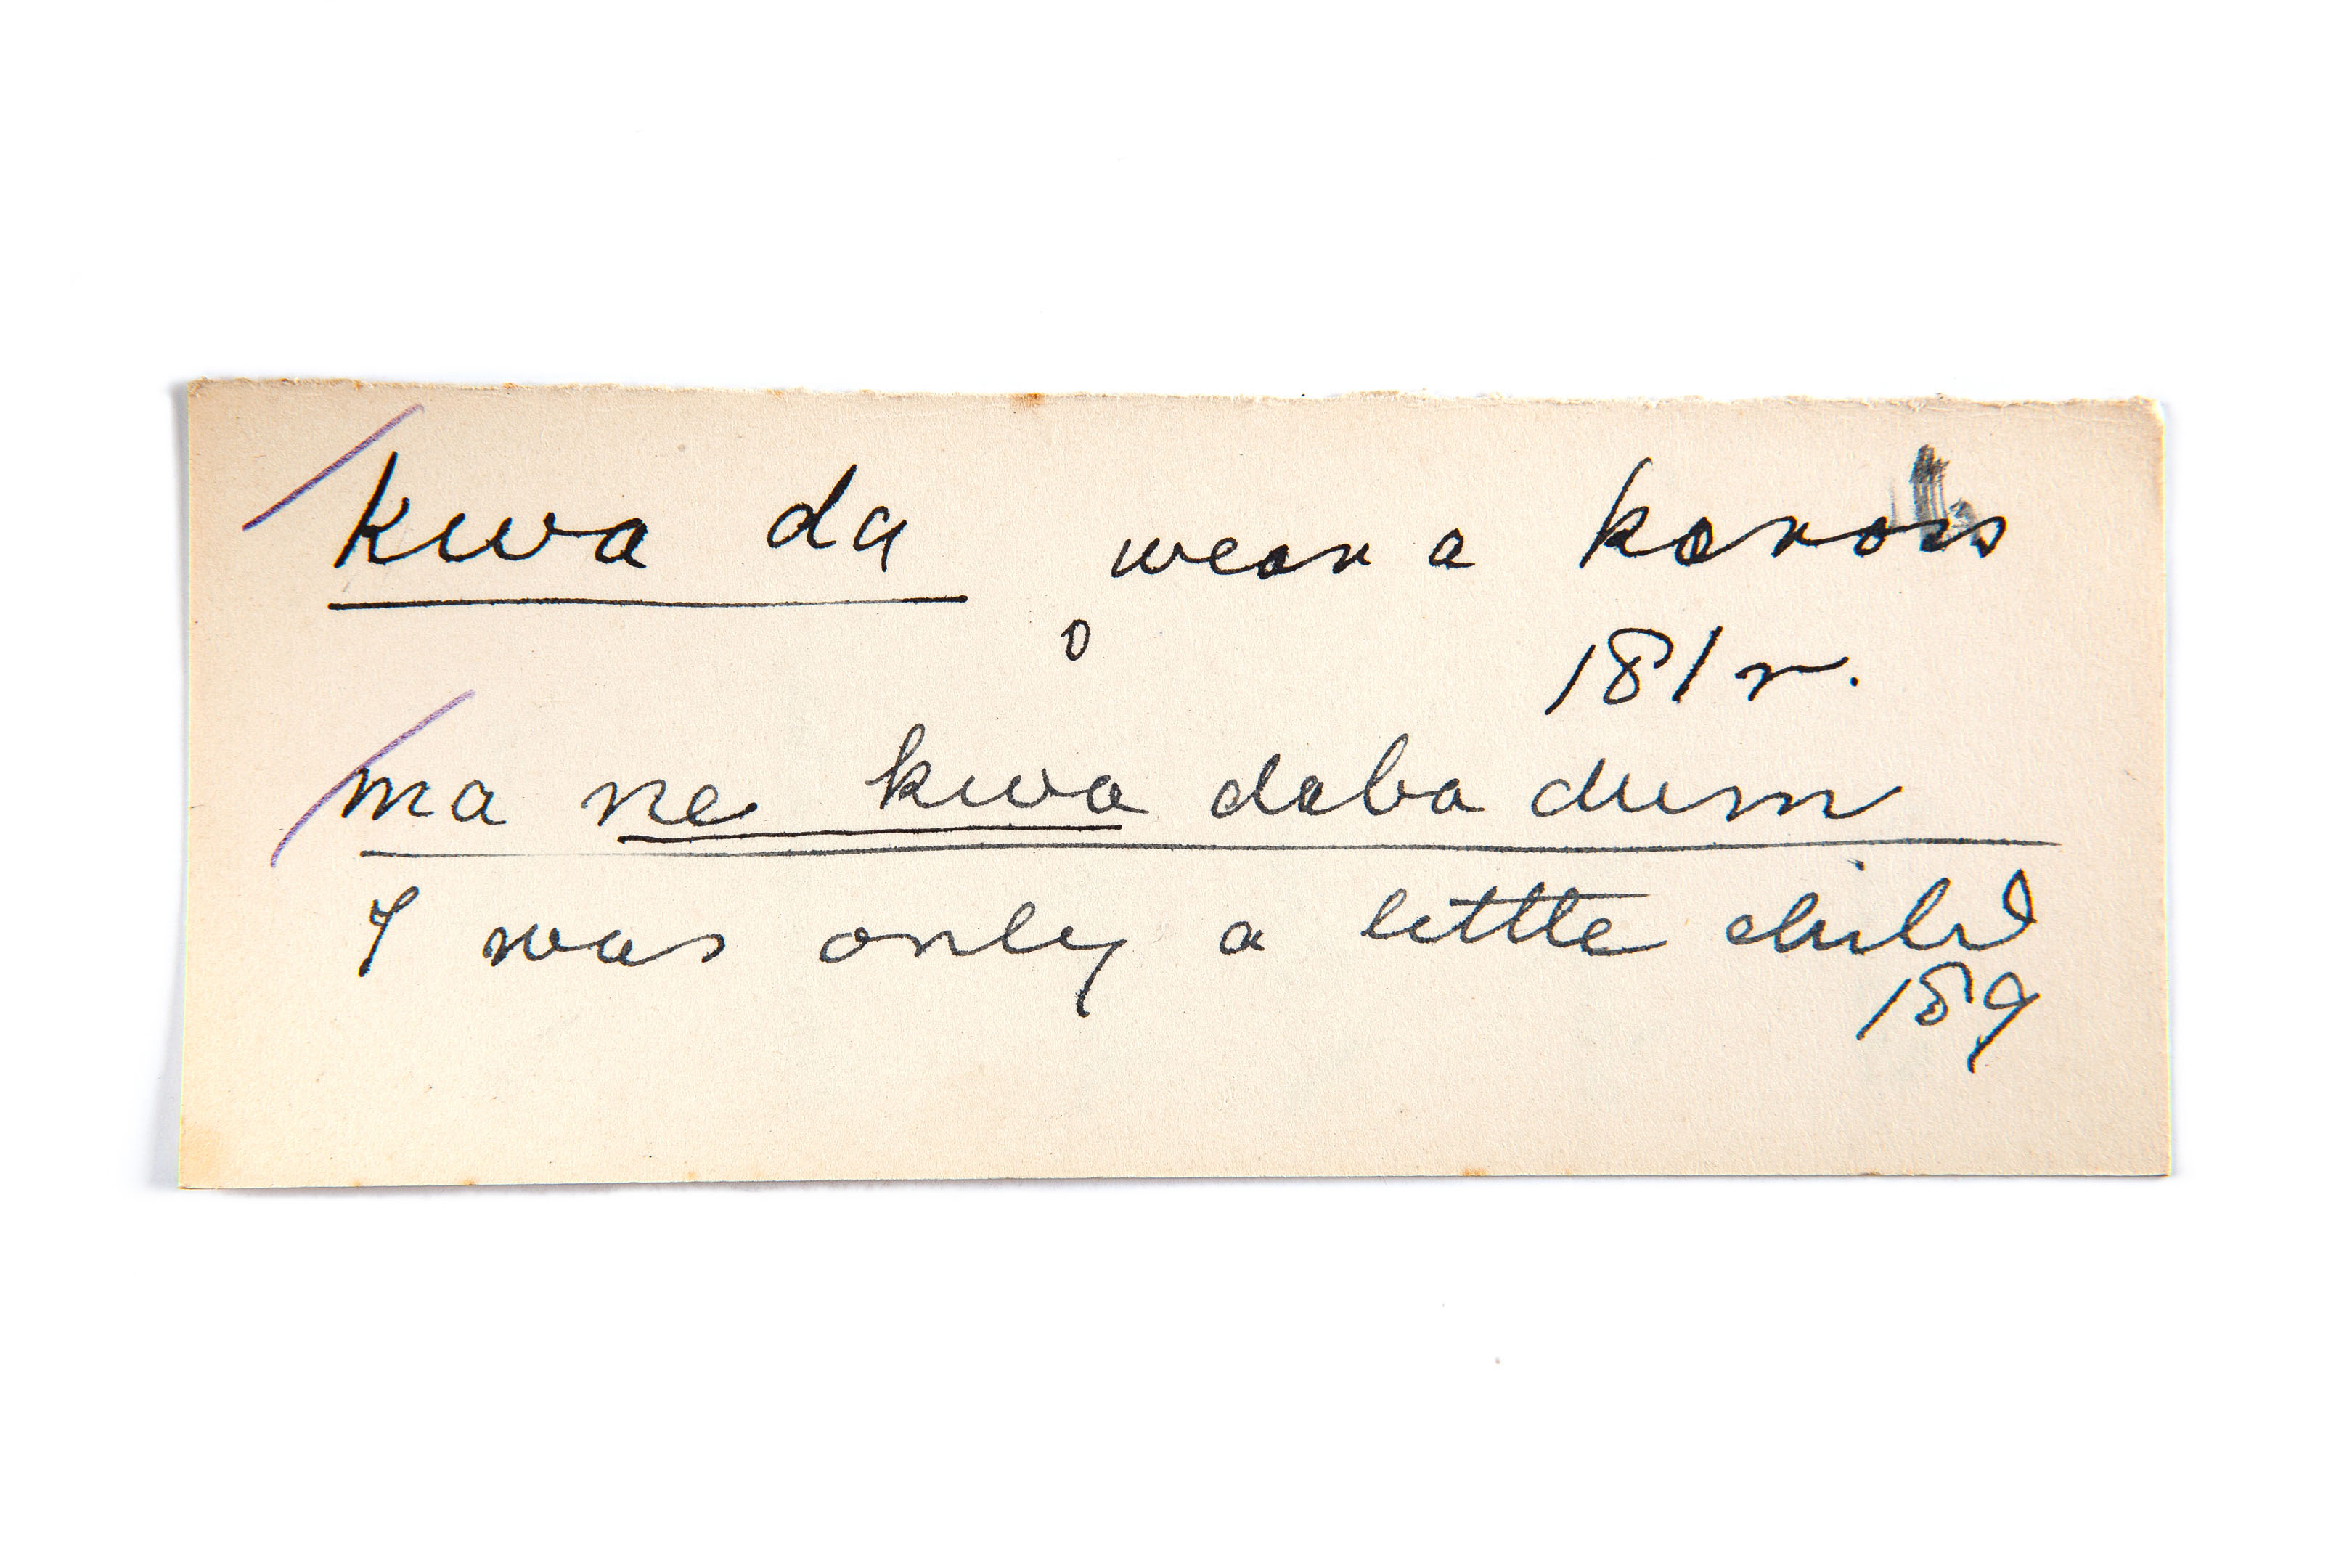 kwa da wear a kaross
o
181 r.
ma ne kwa daba dum
I was only a little child
189